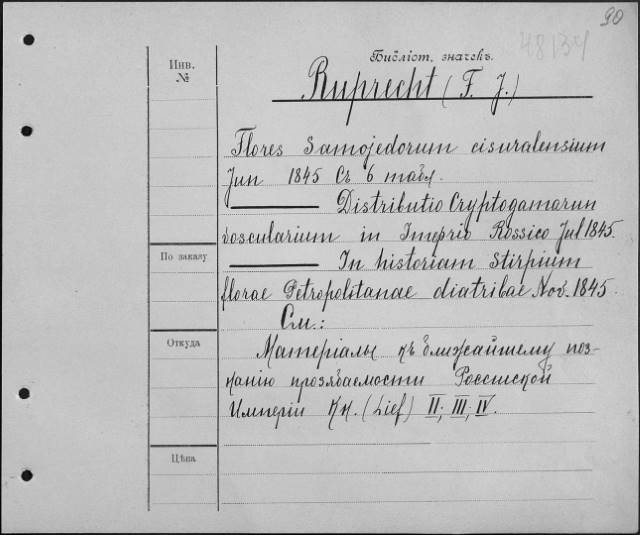 90
48134
Библіот. значекъ.
Инв.
№
Ruprecht (F. J.)
Flores Samojedorum cisuralensium
Jun 1845 Съ 6 табл.
Distributio Cryptogamarum
voscularium in Imeprio Rossico Jul 1845.
По заказу
In historiam Stirpium
florae Petropolitanae diatribae Nov. 1845
См.:
Откуда
Матеріалы къ ближайшему поз-
нанію прозябаемости Россійской
Имперіи Кн. (Lief) II; III; IV.
Цѣна